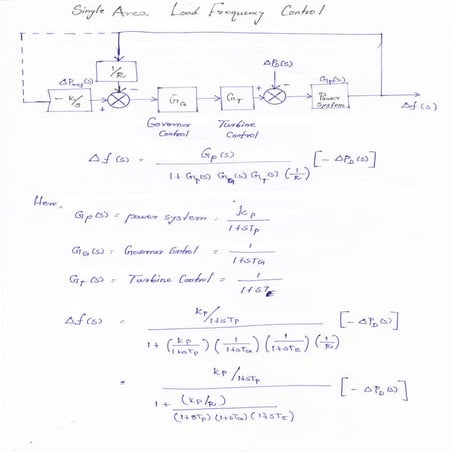 Single Area Load Frequency Control
1/R
ΔPref(s) ΔPD(s) Gp(s)
- K/S + - GG GT + - Power System Δf(s)
Governor Control Turbine Control
Δf(s) = Gp(s) / 1 + Gp(s) GG(s) GT(s) (1/R) [- ΔPD(s)]
Here,
Gp(s) = power system = kp / 1+STp
GG(s) = Governor Control = 1 / 1+STG
GT(s) = Turbine Control = 1 / 1+STE
Δf(s) = kp/1+STp / 1 + (kp/1+STp) (1/1+STG) (1/1+STE) (1/R) [- ΔPD(s)]
= kp/1+STp / 1 + (kp/R) / (1+STp) (1+STG) (1+STE) [- ΔPD(s)]